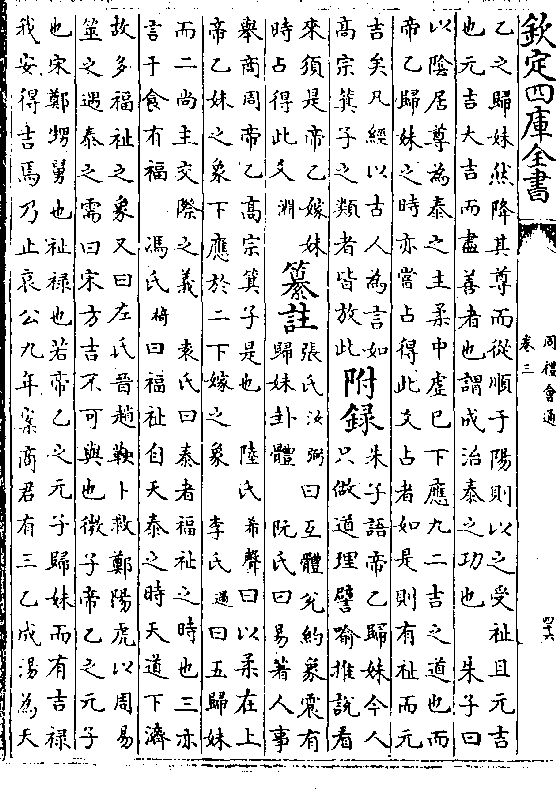 欽定四庫全書
周禮會通
卷三
四十六
乙之歸妹然降其尊而從順于陽則以之受祉且元吉
也元吉大吉而盡善者也謂成治泰之功也　朱子曰
以陰居尊為泰之主柔中虚已下應九二吉之道也而
帝乙歸妹之時亦嘗占得此爻占者如是則有祉而元
吉矣凡經以古人為言如
高宗箕子之類者皆放此附録朱子語帝乙歸妹今人只做道理譬喻推説看
來須是帝乙嫁妹
時占得此爻淵纂註張氏汝弼曰互體兊約象震有歸妹卦體　阮氏曰易著人事
舉商周帝乙高宗箕子是也　陸氏希聲曰以柔在上
帝乙妹之象下應於二下嫁之象　李氏過曰五歸妹
而二尚主交際之義　袁氏曰泰者福祉之時也三亦
言于食有福　馮氏椅曰福祉自天泰之時天道下濟
故多福祉之象又曰左氏晉趙鞅卜救鄭陽虎以周易
筮之遇泰之需曰宋方吉不可與也微子帝乙之元子
也宋鄭甥舅也祉禄也若帝乙之元子歸妹而有吉禄
我安得吉焉乃止哀公九年案商君有三乙成湯為天